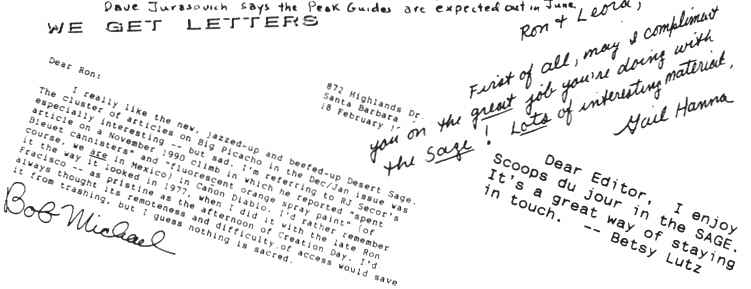 Dave Jurasovich says the Peak Guides are expected out in June
WE GET LETTERS
Dear Ron:
872 Highlands Dr.
Santa Barbara
18 February
I really like the new, jazzed-up and beefed-up Desert Sage.
The cluster of articles on Big Picacho in the Dec/Jan issue was
especially interesting -- but sad. I'm referring to RJ Secor's
article on a November 1990 climb in which he reported "spent
Bleuet cannisters" and "fluorescent orange spray paint" (of
course, we are in Mexico) in Canon Diablo. I'd rather remember
it the way it looked in 1977, when I did it with the late Ron
Fracisco -- as pristine as the afternoon of Creation Day. I'd
always thought its remoteness and difficulty of access would save
it from trashing, but I guess nothing is sacred.
Bob Michael
Ron & Leora,
First of all, may I compliment
you on the great job you're doing with
the Sage! Lots of interesting material,
Gail Hanna
Dear Editor, I enjoy
Scoops du jour in the SAGE.
It's a great way of staying
in touch. -- Betsy Lutz